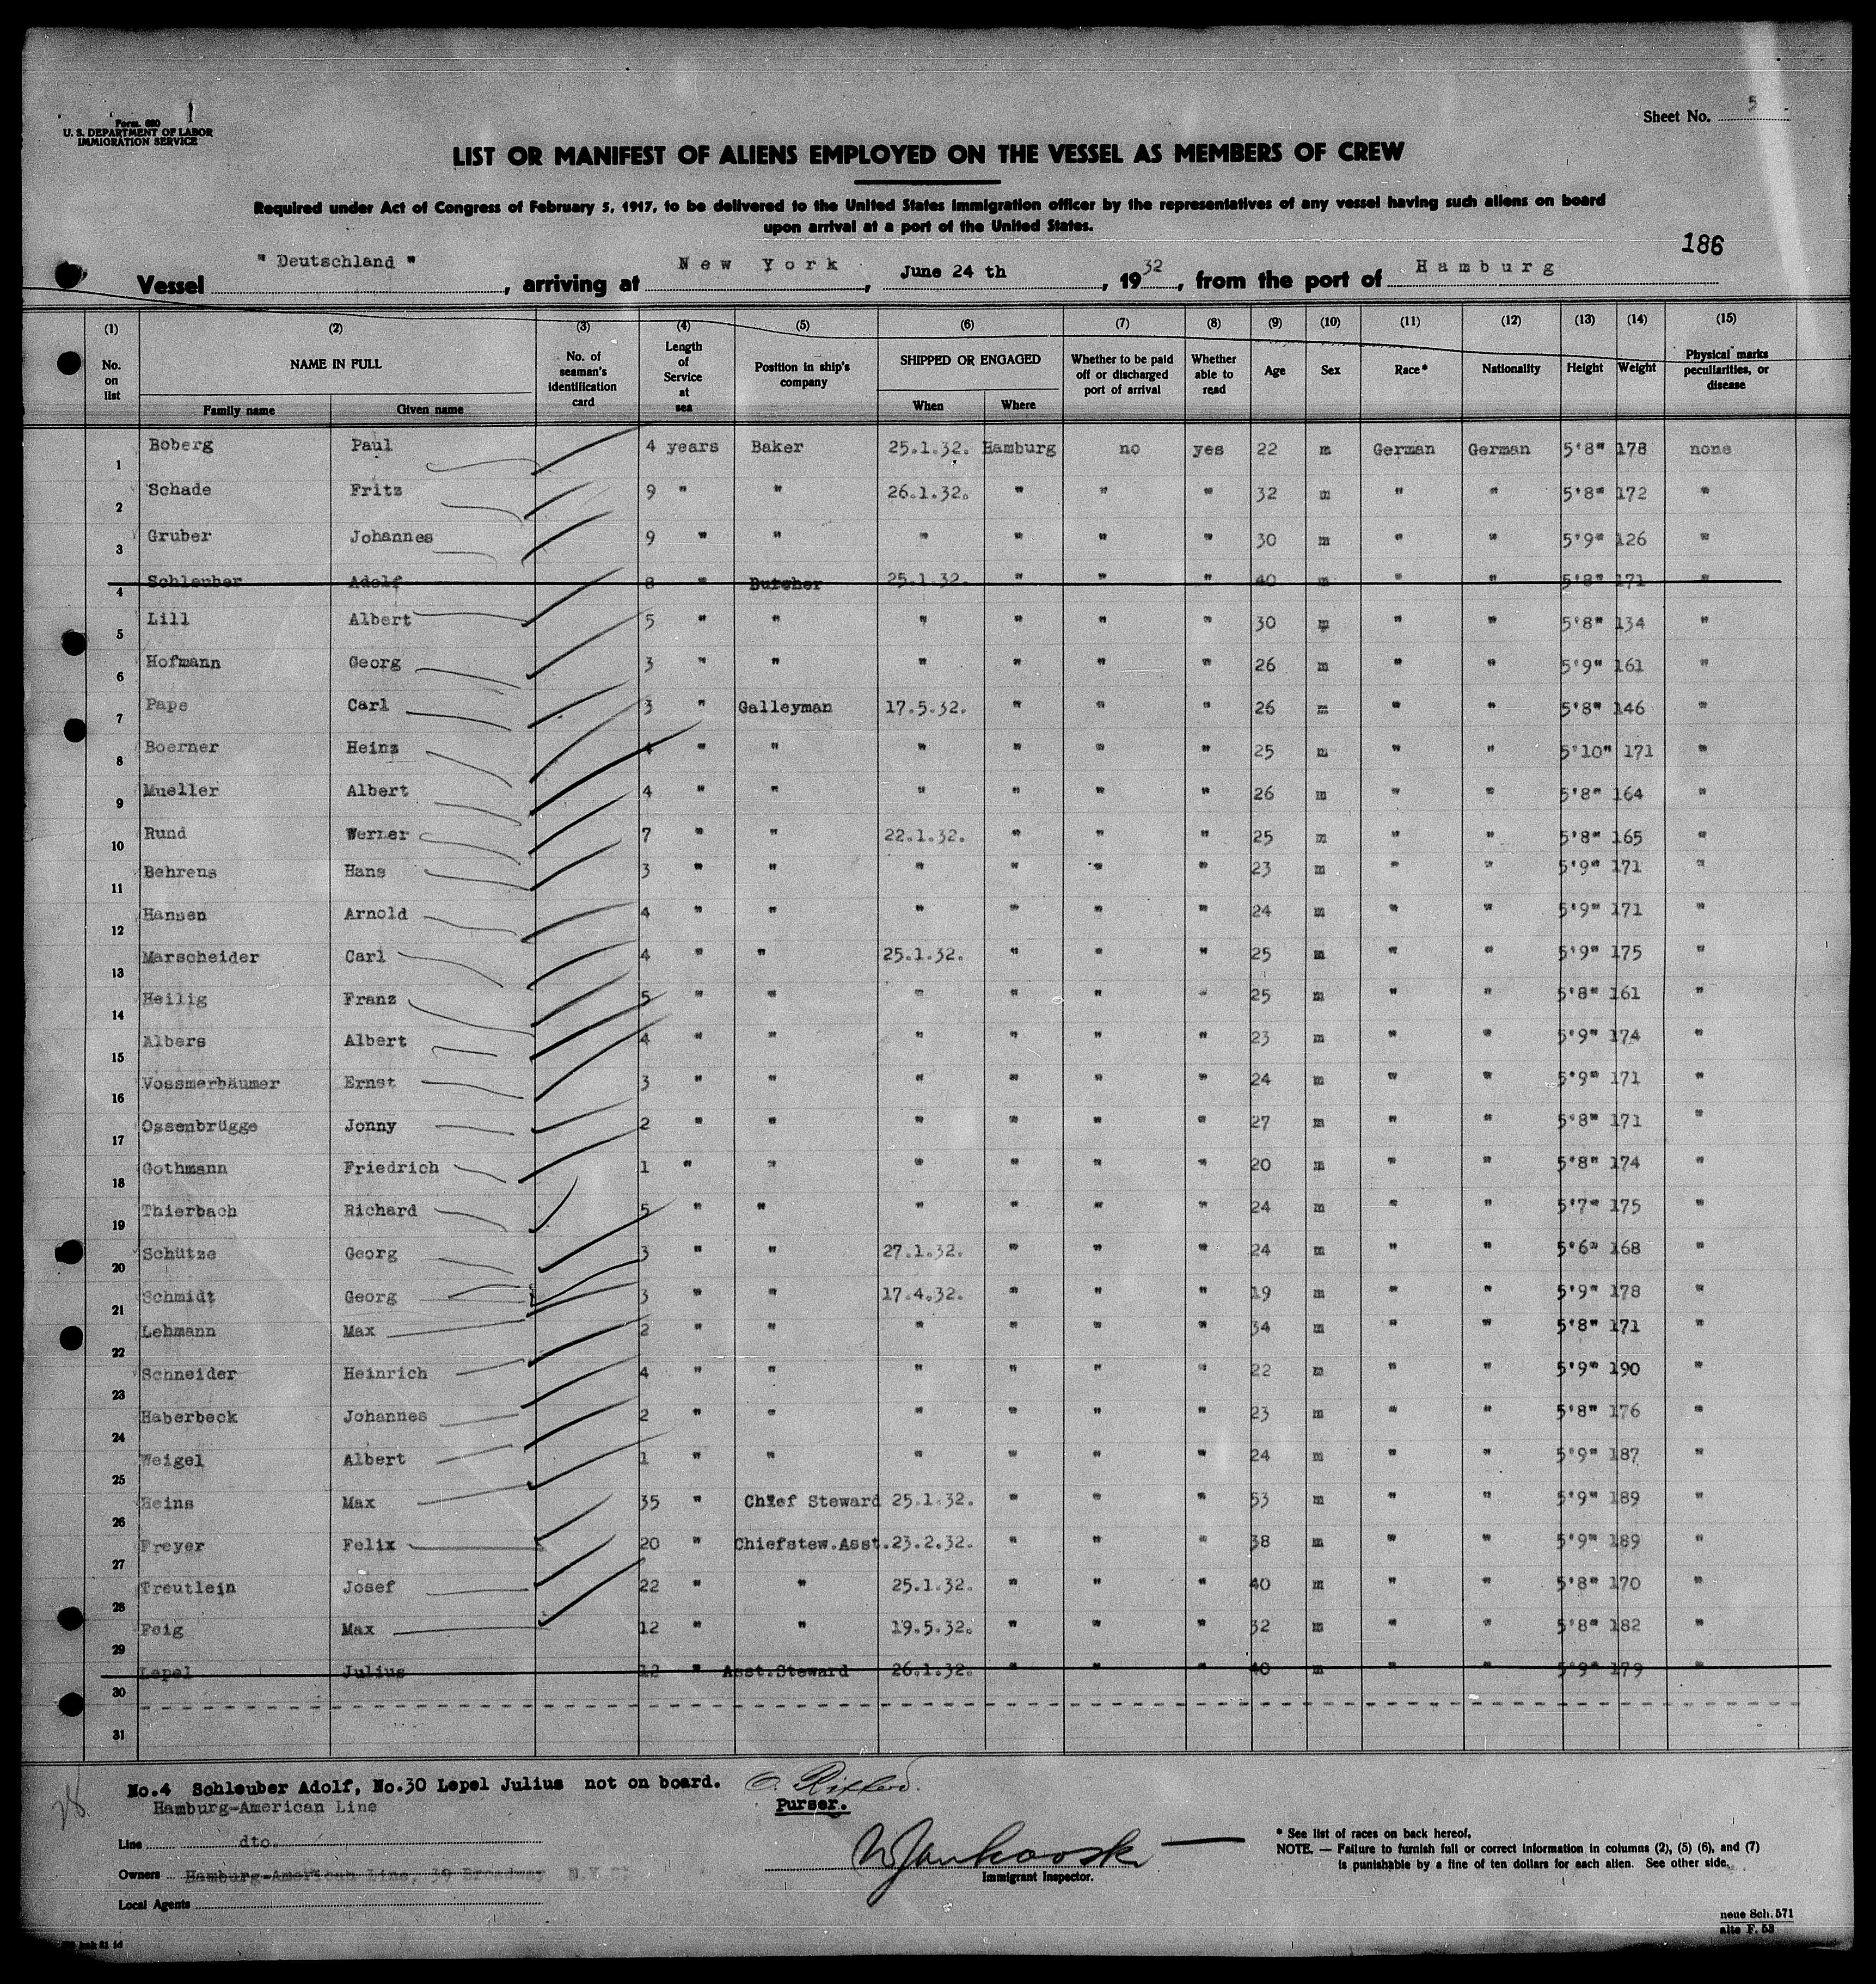 Form 680
U. S. DEPARTMENT OF LABOR
IMMIGRATION SERVICE
Sheet No. 5
LIST OR MANIFEST OF ALIENS EMPLOYED ON THE VESSEL AS MEMBERS OF CREW
Required under Act of Congress of February 5, 1917, to be delivered to the United States Immigration officer by the representatives of any vessel having such aliens on board
upon arrival at a port of the United States.
186
Vessel " Deutschland ", arriving at New York, June 24 th, 1932, from the port of Hamburg
(1) (2) (3) (4) (5) (6) (7) (8) (9) (10) (11) (12) (13) (14) (15)
No. on list NAME IN FULL Family name Given name No. of seaman's identification card Length of Service at sea Position in ship's company SHIPPED OR ENGAGED When Where Whether to be paid off or discharged port of arrival Whether able to read Age Sex Race* Nationality Height Weight Physical marks peculiarities, or disease
1 Boberg Paul 4 years Baker 25.1.32. Hamburg no yes 22 m German German 5'8" 178 none
2 Schade Fritz 9 " " 26.1.32. " " " 32 m " " 5'8" 172 "
3 Gruber Johannes 9 " " " " " " 30 m " " 5'9" 126 "
4 Schleuber Adolf 8 " Butcher 25.1.32. " " " 40 m " " 5'8" 171 "
5 Lill Albert 5 " " " " " " 30 m " " 5'8" 134 "
6 Hofmann Georg 3 " " " " " " 26 m " " 5'9" 161 "
7 Pape Carl 3 " Galleyman 17.5.32. " " " 26 m " " 5'8" 146 "
8 Boerner Heinz 4 " " " " " " 25 m " " 5'10" 171 "
9 Mueller Albert 4 " " " " " " 26 m " " 5'8" 164 "
10 Rund Werner 7 " " 22.1.32. " " " 25 m " " 5'8" 165 "
11 Behrens Hans 3 " " " " " " 23 m " " 5'9" 171 "
12 Hansen Arnold 4 " " " " " " 24 m " " 5'9" 171 "
13 Marscheider Carl 4 " " 25.1.32. " " " 25 m " " 5'9" 175 "
14 Heilig Franz 5 " " " " " " 25 m " " 5'8" 161 "
15 Albers Albert 4 " " " " " " 23 m " " 5'9" 174 "
16 Vossmerbäumer Ernst 3 " " " " " " 24 m " " 5'9" 171 "
17 Ossenbrügge Jonny 2 " " " " " " 27 m " " 5'8" 171 "
18 Gothmann Friedrich 1 " " " " " " 20 m " " 5'8" 174 "
19 Thierbach Richard 5 " " " " " " 24 m " " 5'7" 175 "
20 Schütze Georg 3 " " 27.1.32. " " " 24 m " " 5'6" 168 "
21 Schmidt Georg 3 " " 17.4.32. " " " 19 m " " 5'9" 178 "
22 Lehmann Max 2 " " " " " " 34 m " " 5'8" 171 "
23 Schneider Heinrich 4 " " " " " " 22 m " " 5'9" 190 "
24 Haberbeck Johannes 2 " " " " " " 23 m " " 5'8" 176 "
25 Weigel Albert 1 " " " " " " 24 m " " 5'9" 187 "
26 Heins Max 35 " Chief Steward 25.1.32. " " " 53 m " " 5'9" 189 "
27 Freyer Felix 20 " Chiefstew.Asst. 23.2.32. " " " 38 m " " 5'9" 189 "
28 Treutlein Josef 22 " " 25.1.32. " " " 40 m " " 5'8" 170 "
29 Feig Max 12 " " 19.5.32. " " " 32 m " " 5'8" 182 "
30 Lepel Julius 12 " Asst.Steward 26.1.32. " " " 40 m " " 5'9" 179 "
31
No.4 Schleuber Adolf, No.30 Lepel Julius not on board.
Purser.
28
Hamburg-American Line
Line dto.
Owners Hamburg-American Line, 39 Broadway N.Y.
Local Agents
W Jankowski
Immigrant Inspector.
* See list of races on back hereof.
NOTE. — Failure to furnish full or correct information in columns (2), (5) (6), and (7)
is punishable by a fine of ten dollars for each alien. See other side.
neue Sch. 571
alte F. 53